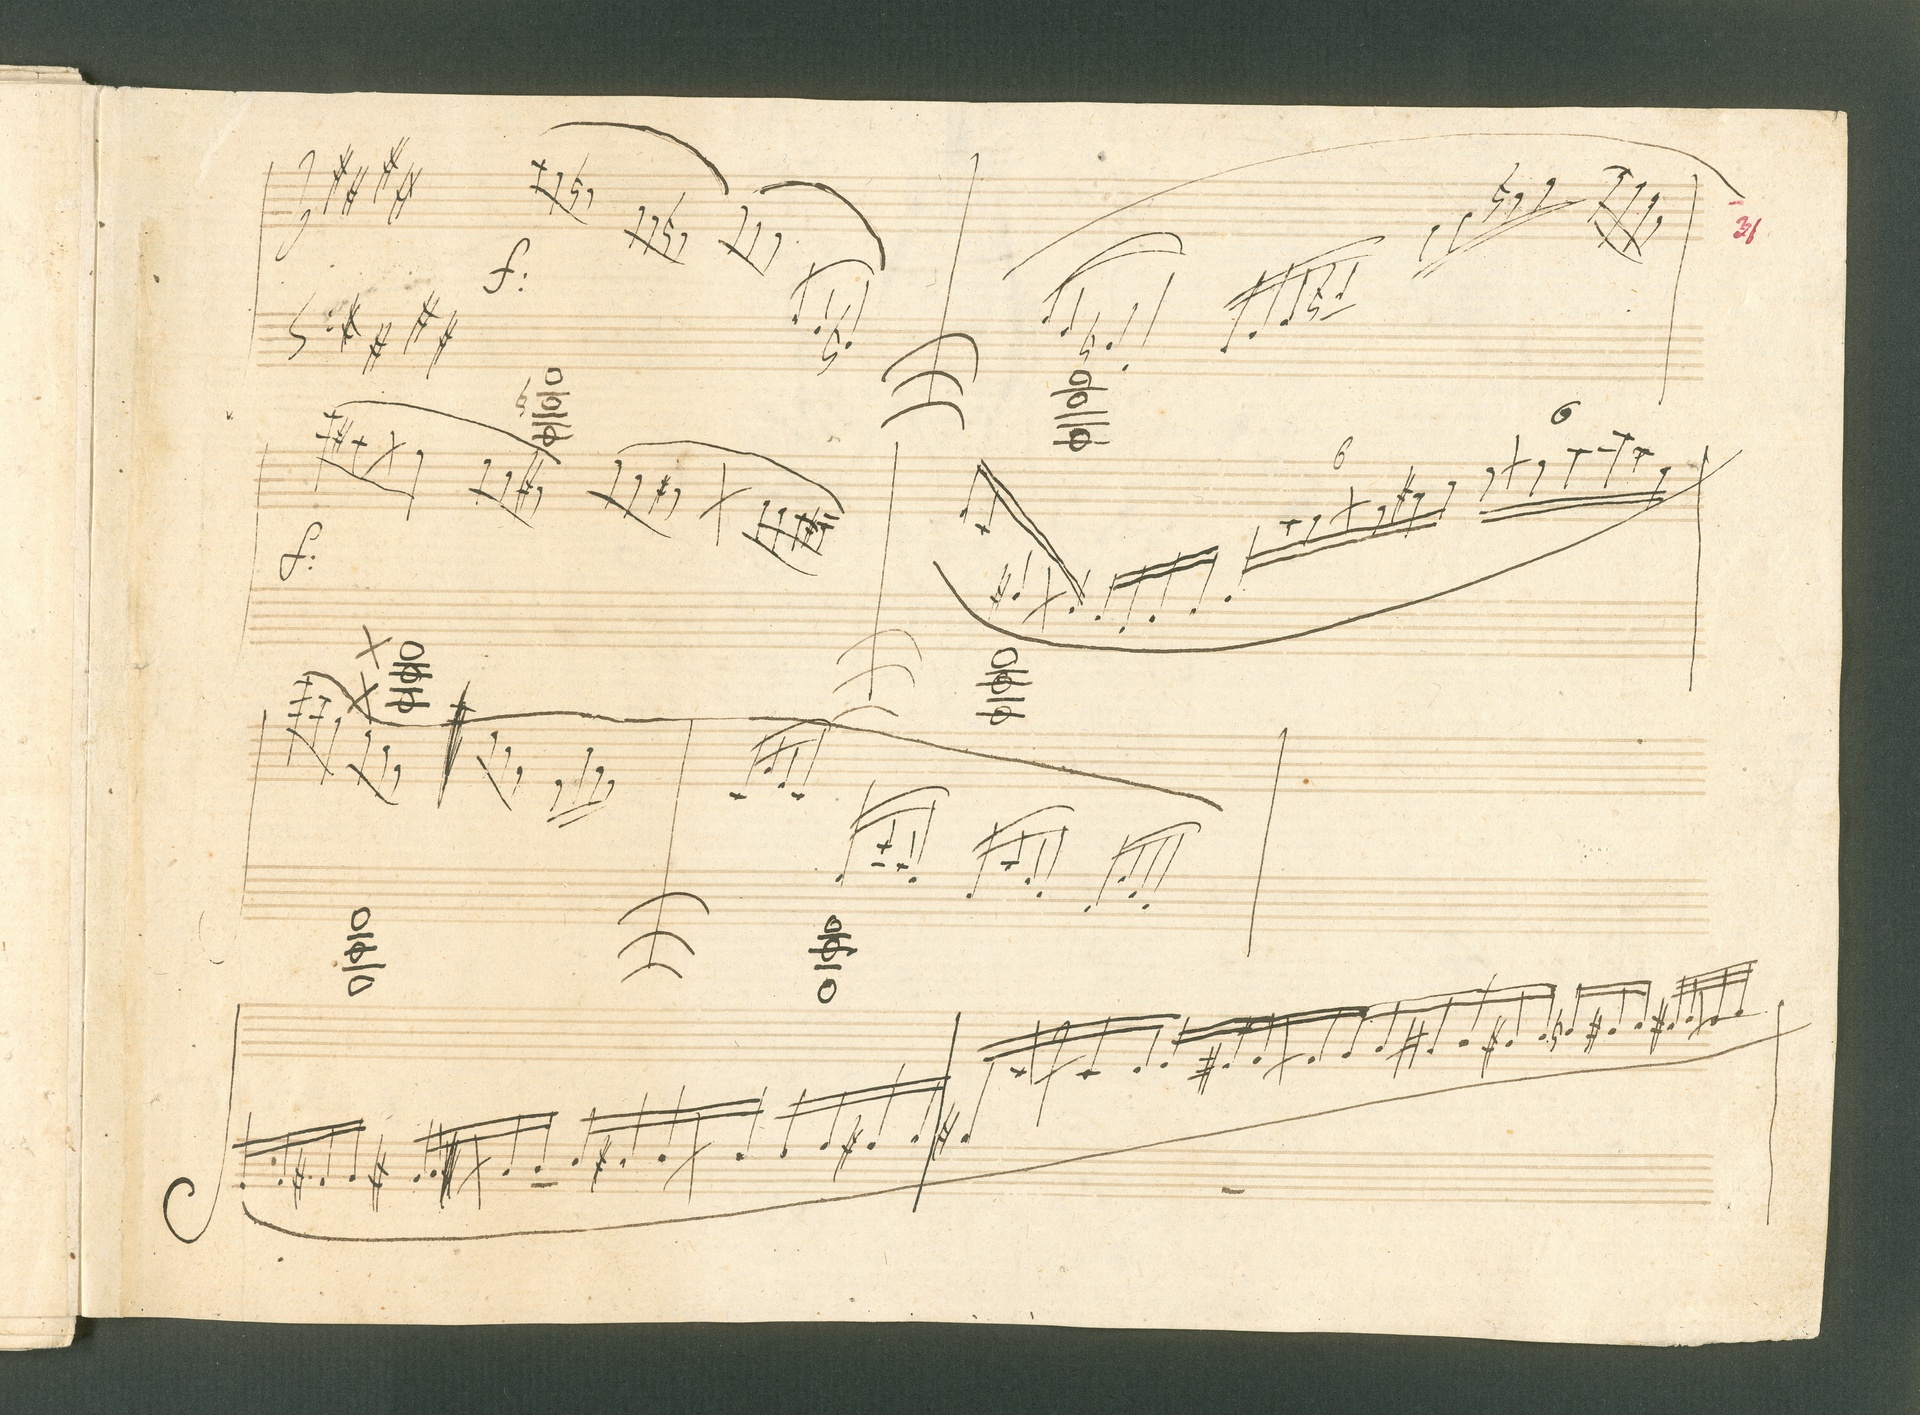 31
f:
6
6
f: